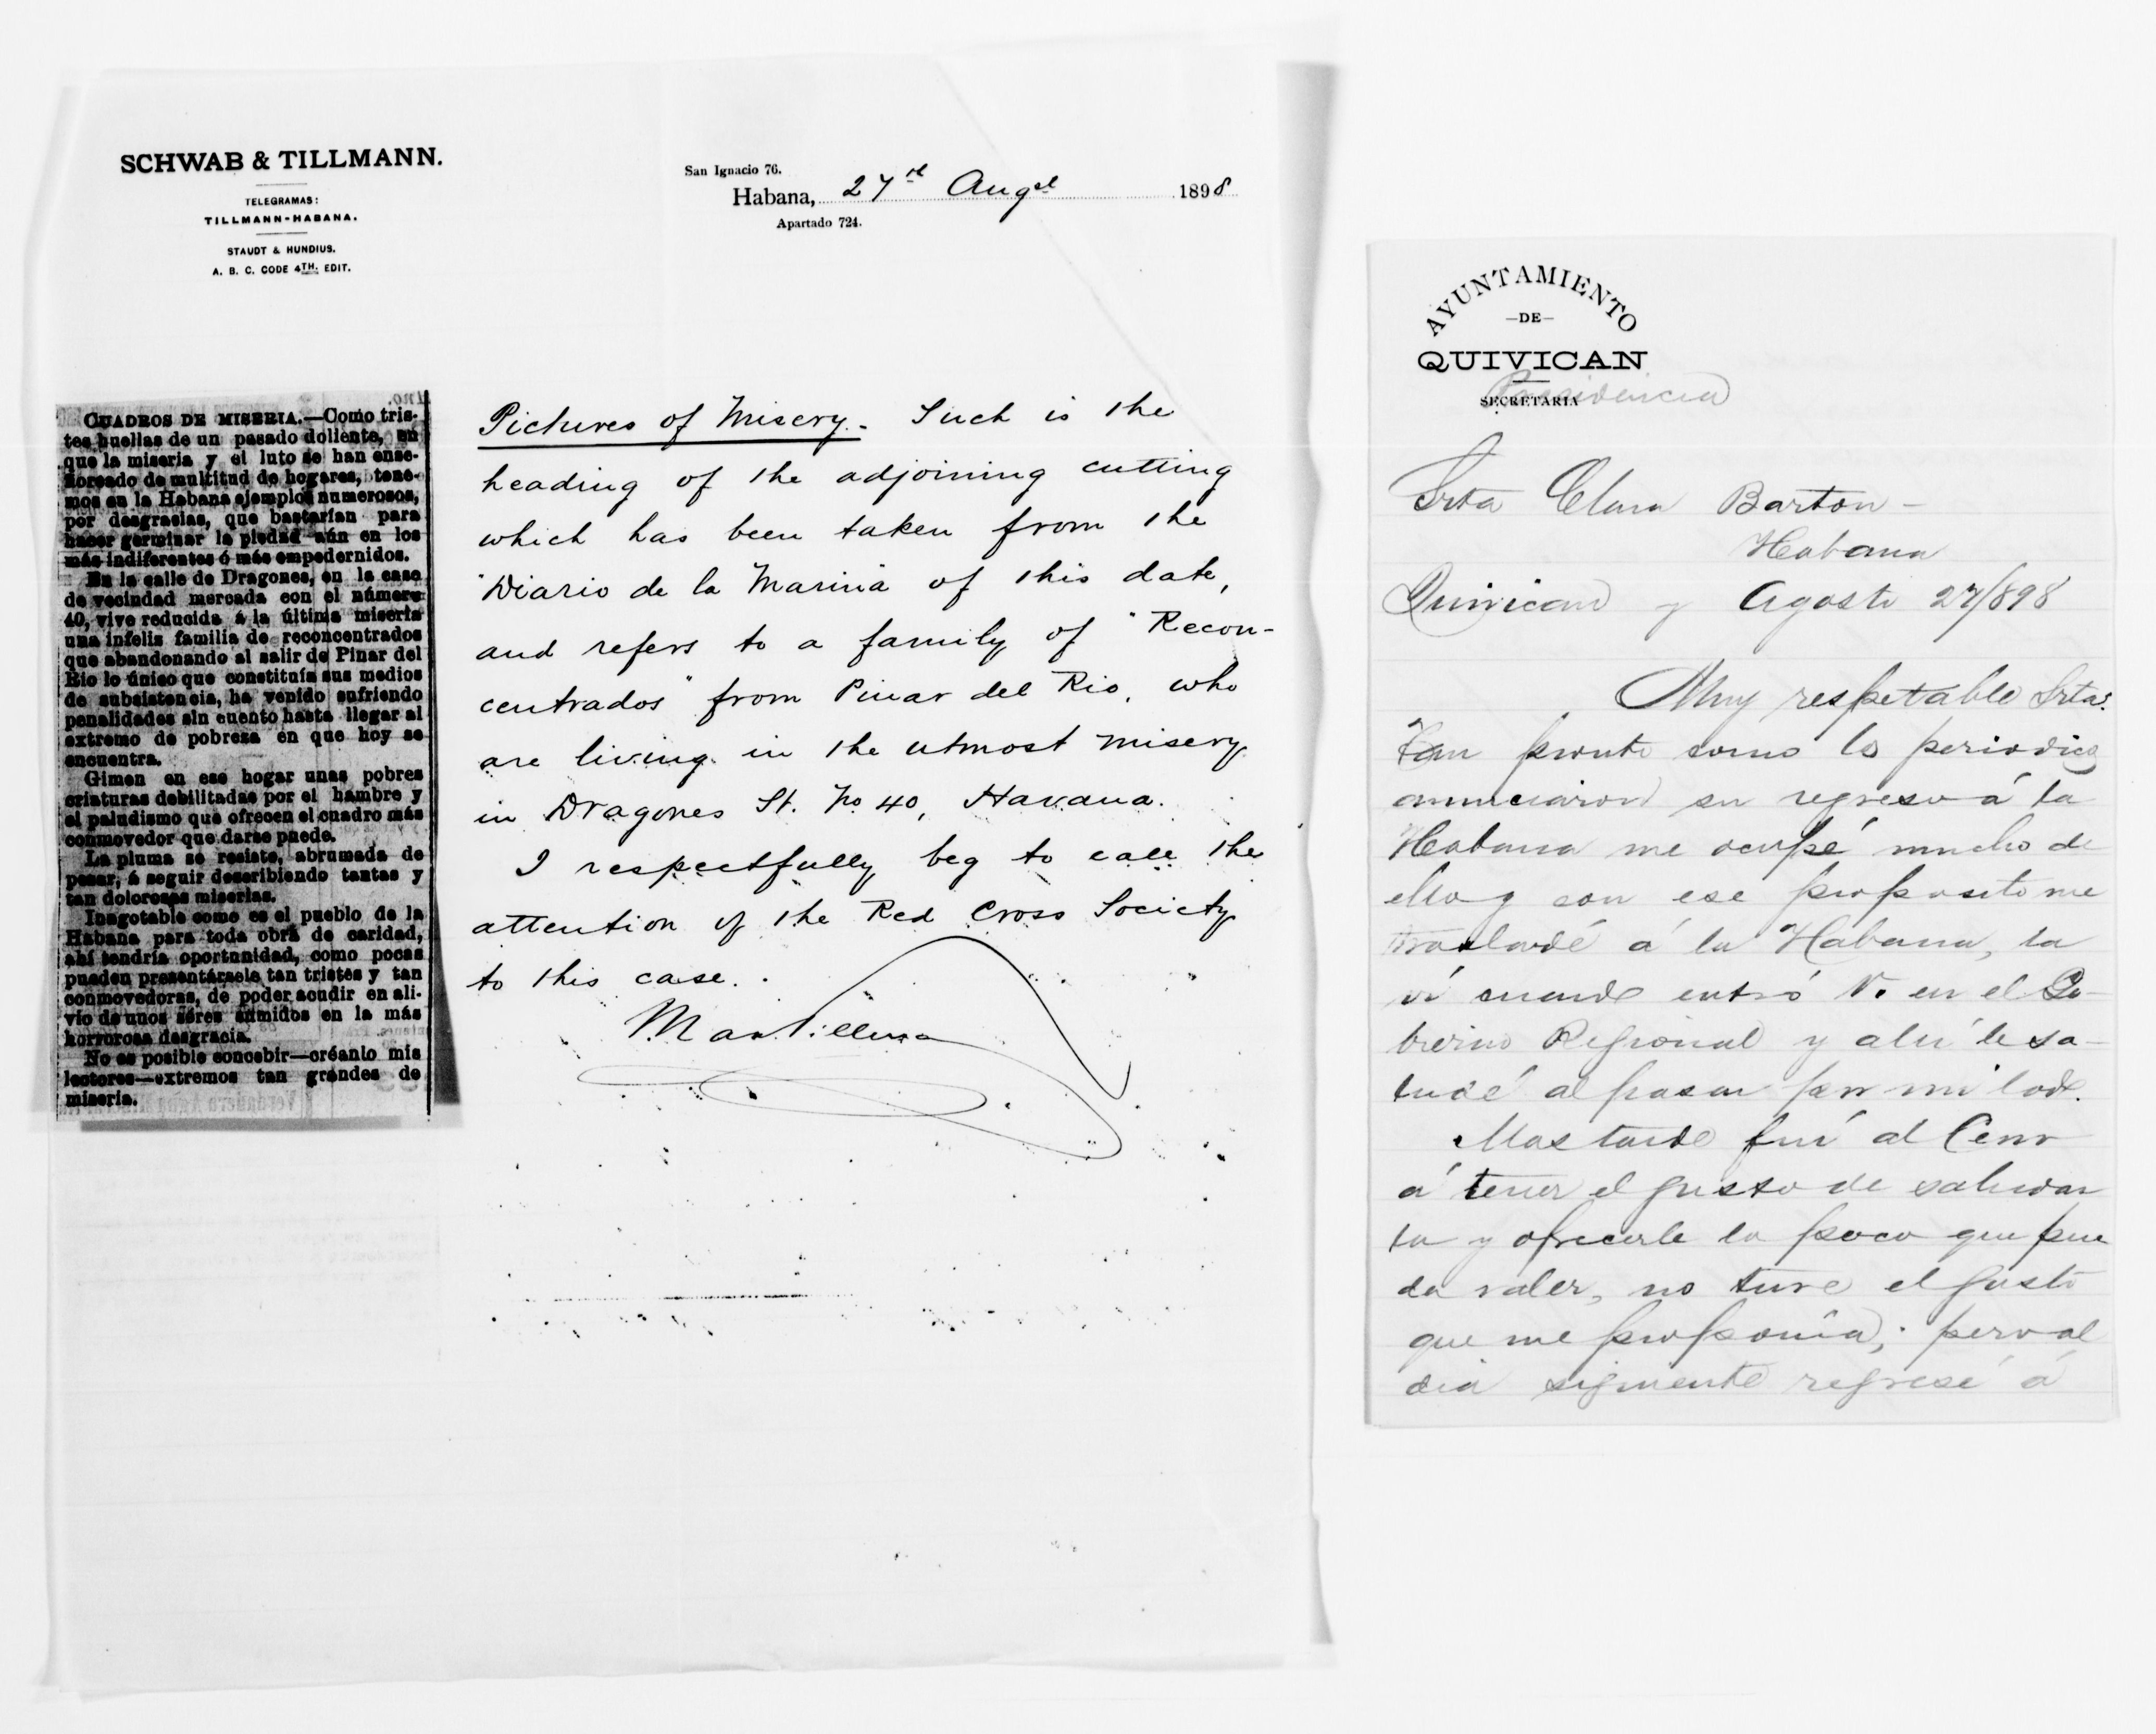 SCHWAB & TILLMANN.
TELEGRAMAS:
TILLMANN-HABANA.
STAUDT & HUNDIUS.
A. B. C. CODE 4TH. EDIT.
San Ignacio 76.
Habana, 27th Augst 1898
Apartado 724.
CUADROS DE MISERIA.—Como tris-
tes huellas de un pasado doliente, en
que la miseria y el luto se han ense-
ñoreado de multitud de hogares, tene-
mos en la Habana ejemplos numerosos,
por desgracias, que bastarían para
hacer germinar la piedad aún en los
más indiferentes ó más empedernidos.
En la calle de Dragones, en la casa
de vecindad marcada con el número
40, vive reducida á la última miseria
una infeliz familia de reconcentrados
que abandonando al salir de Pinar del
Rio lo único que constituía sus medios
de subsistencia, ha venido sufriendo
penalidades sin cuento hasta llegar al
extremo de pobreza en que hoy se
encuentra.
Gimen en ese hogar unas pobres
criaturas debilitadas por el hambre y
el paludismo que ofrecen el cuadro más
conmovedor que darse puede.
La pluma se resiste, abrumada de
pesar, á seguir describiendo tantas y
tan dolorosas miserias.
Inagotable como es el pueblo de la
Habana para toda obra de caridad,
ahí tendría oportunidad, como pocas
pueden presentársele tan tristes y tan
conmovedoras, de poder acudir en ali-
vio de unos séres sumidos en la más
horrorosa desgracia.
No es posible concebir—créanlo mis
lectores—extremos tan grandes de
miseria.
Pictures of Misery.- Such is the
heading of the adjoining cutting
which has been taken from the
"Diario de la Marina" of this date,
and refers to a family of "Recon-
centrados" from Pinar del Rio, who
are living in the utmost misery
in Dragones St. No 40, Havana.
I respectfully beg to call the
attention of the Red Cross Society
to this case.
AYUNTAMIENTO
—DE—
QUIVICAN
SECRETARIA
Presidencia
Srta Clara Barton -
Habana
Quivican y Agosto 27/898
Muy respetable Srta:
Tan pronto como los periodicos
anunciaron su regreso á la
Habana me ocupé mucho de
ello y con ese proposito me
trasladé á la Habana, la
ví cuando entró V. en el Go-
bierno Regional y ahí le sa-
ludé al pasar por mi lado.
Mas tarde fuí al Cerro
á tener el gusto de saludar
la y ofrecerle lo poco que pue
da valer, no tuve el gusto
que me proponía; pero al
dia siguiente regresé á